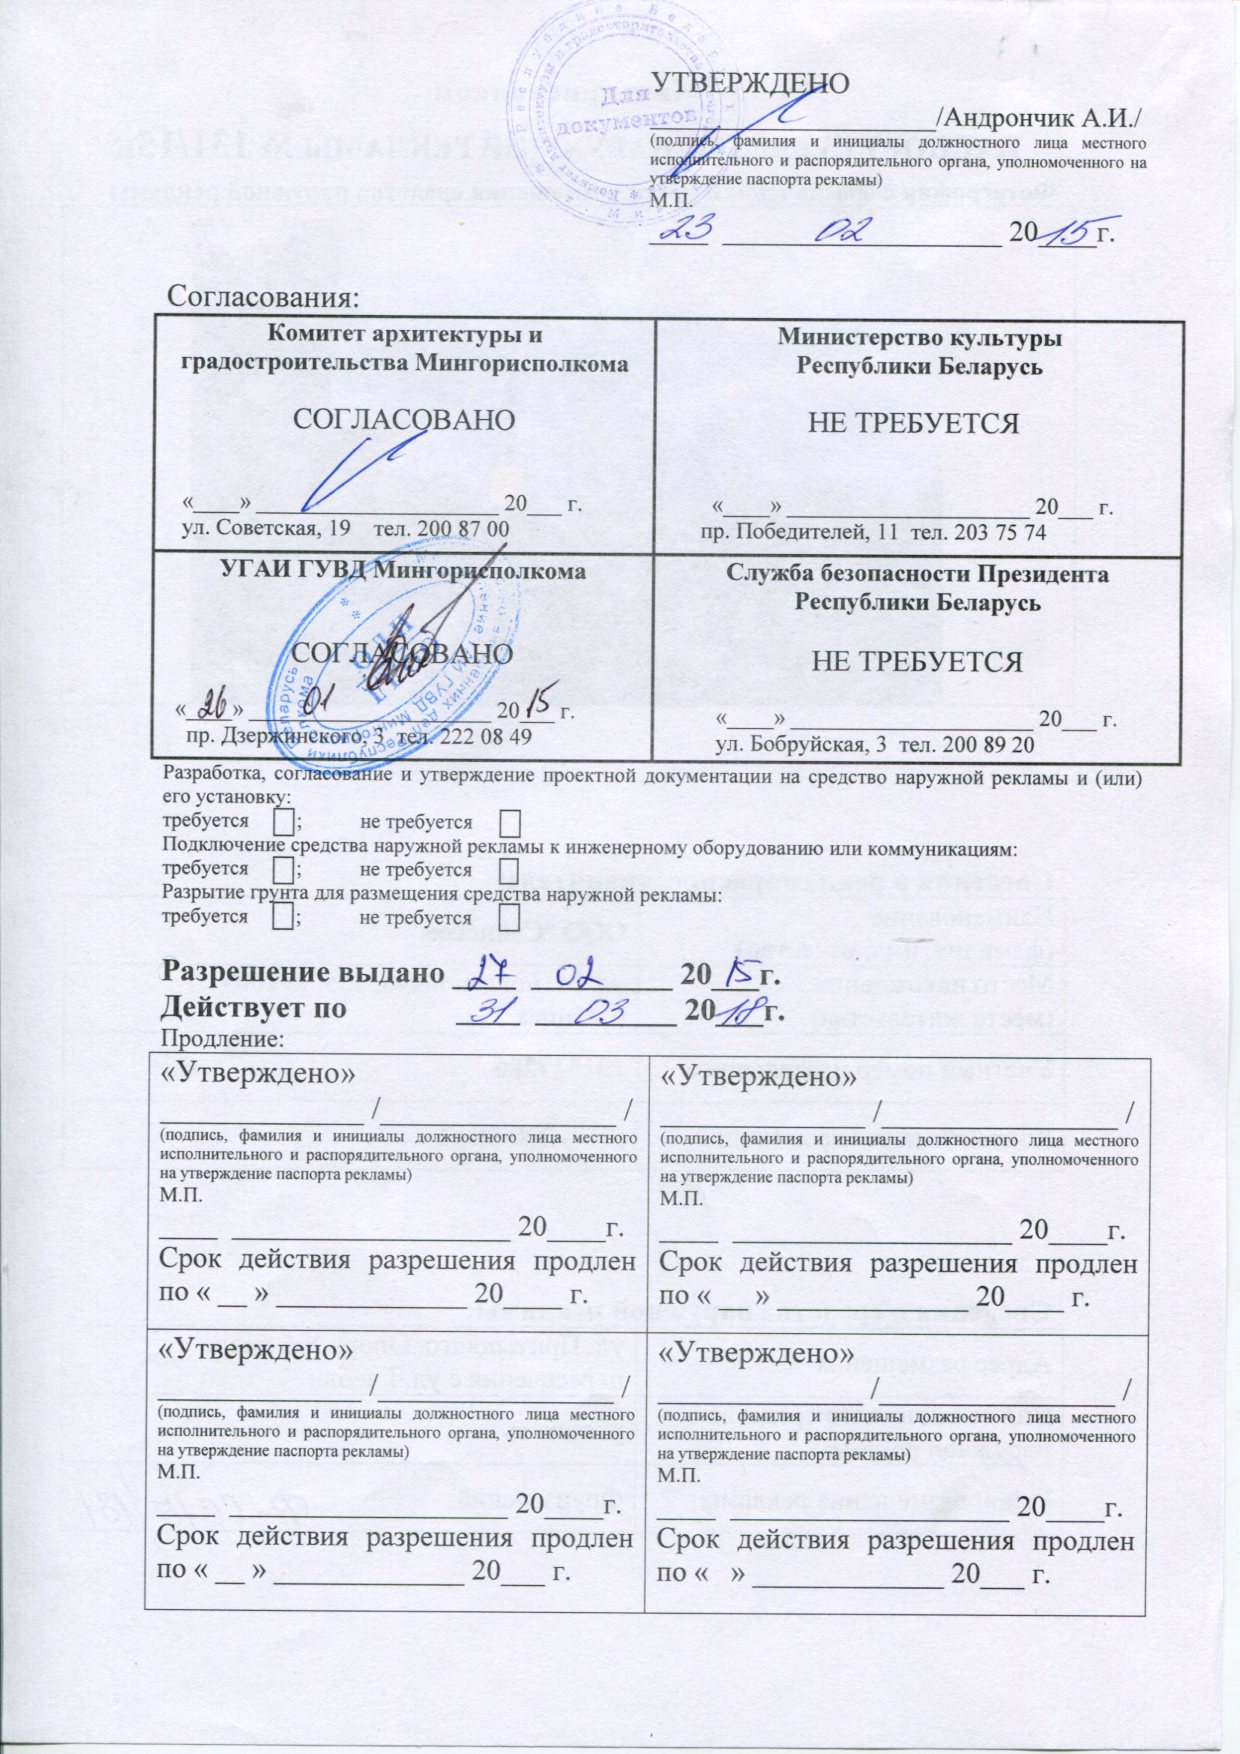 УТВЕРЖДЕНО
Для
документов
____________________/Андрончик А.И./
(подпись, фамилия и инициалы должностного лица местного
исполнительного и распорядительного органа, уполномоченного на
утверждение паспорта рекламы)
М.П.
23 02 2015г.
Согласования:
Комитет архитектуры и
градостроительства Мингорисполкома
СОГЛАСОВАНО
«____» ____________________ 20___ г.
ул. Советская, 19 тел. 200 87 00
Министерство культуры
Республики Беларусь
НЕ ТРЕБУЕТСЯ
«____» ____________________ 20___ г.
пр. Победителей, 11 тел. 203 75 74
УГАИ ГУВД Мингорисполкома
СОГЛАСОВАНО
«26» 01 2015 г.
пр. Дзержинского, 3 тел. 222 08 49
Служба безопасности Президента
Республики Беларусь
НЕ ТРЕБУЕТСЯ
«____» ____________________ 20___ г.
ул. Бобруйская, 3 тел. 200 89 20
Разработка, согласование и утверждение проектной документации на средство наружной рекламы и (или)
его установку:
требуется ; не требуется
Подключение средства наружной рекламы к инженерному оборудованию или коммуникациям:
требуется ; не требуется
Разрытие грунта для размещения средства наружной рекламы:
требуется ; не требуется
Разрешение выдано 27 02 2015г.
Действует по 31 03 2018г.
Продление:
«Утверждено»
______________ /________________ /
(подпись, фамилия и инициалы должностного лица местного
исполнительного и распорядительного органа, уполномоченного
на утверждение паспорта рекламы)
М.П.
____ ___________________ 20____г.
Срок действия разрешения продлен
по « __ » _____________ 20____ г.
«Утверждено»
______________ /________________ /
(подпись, фамилия и инициалы должностного лица местного
исполнительного и распорядительного органа, уполномоченного
на утверждение паспорта рекламы)
М.П.
____ ___________________ 20____г.
Срок действия разрешения продлен
по « __ » _____________ 20____ г.
«Утверждено»
______________ /________________ /
(подпись, фамилия и инициалы должностного лица местного
исполнительного и распорядительного органа, уполномоченного
на утверждение паспорта рекламы)
М.П.
____ ___________________ 20____г.
Срок действия разрешения продлен
по « __ » _____________ 20___ г.
«Утверждено»
______________ /________________ /
(подпись, фамилия и инициалы должностного лица местного
исполнительного и распорядительного органа, уполномоченного
на утверждение паспорта рекламы)
М.П.
____ ___________________ 20____г.
Срок действия разрешения продлен
по « » _____________ 20___ г.